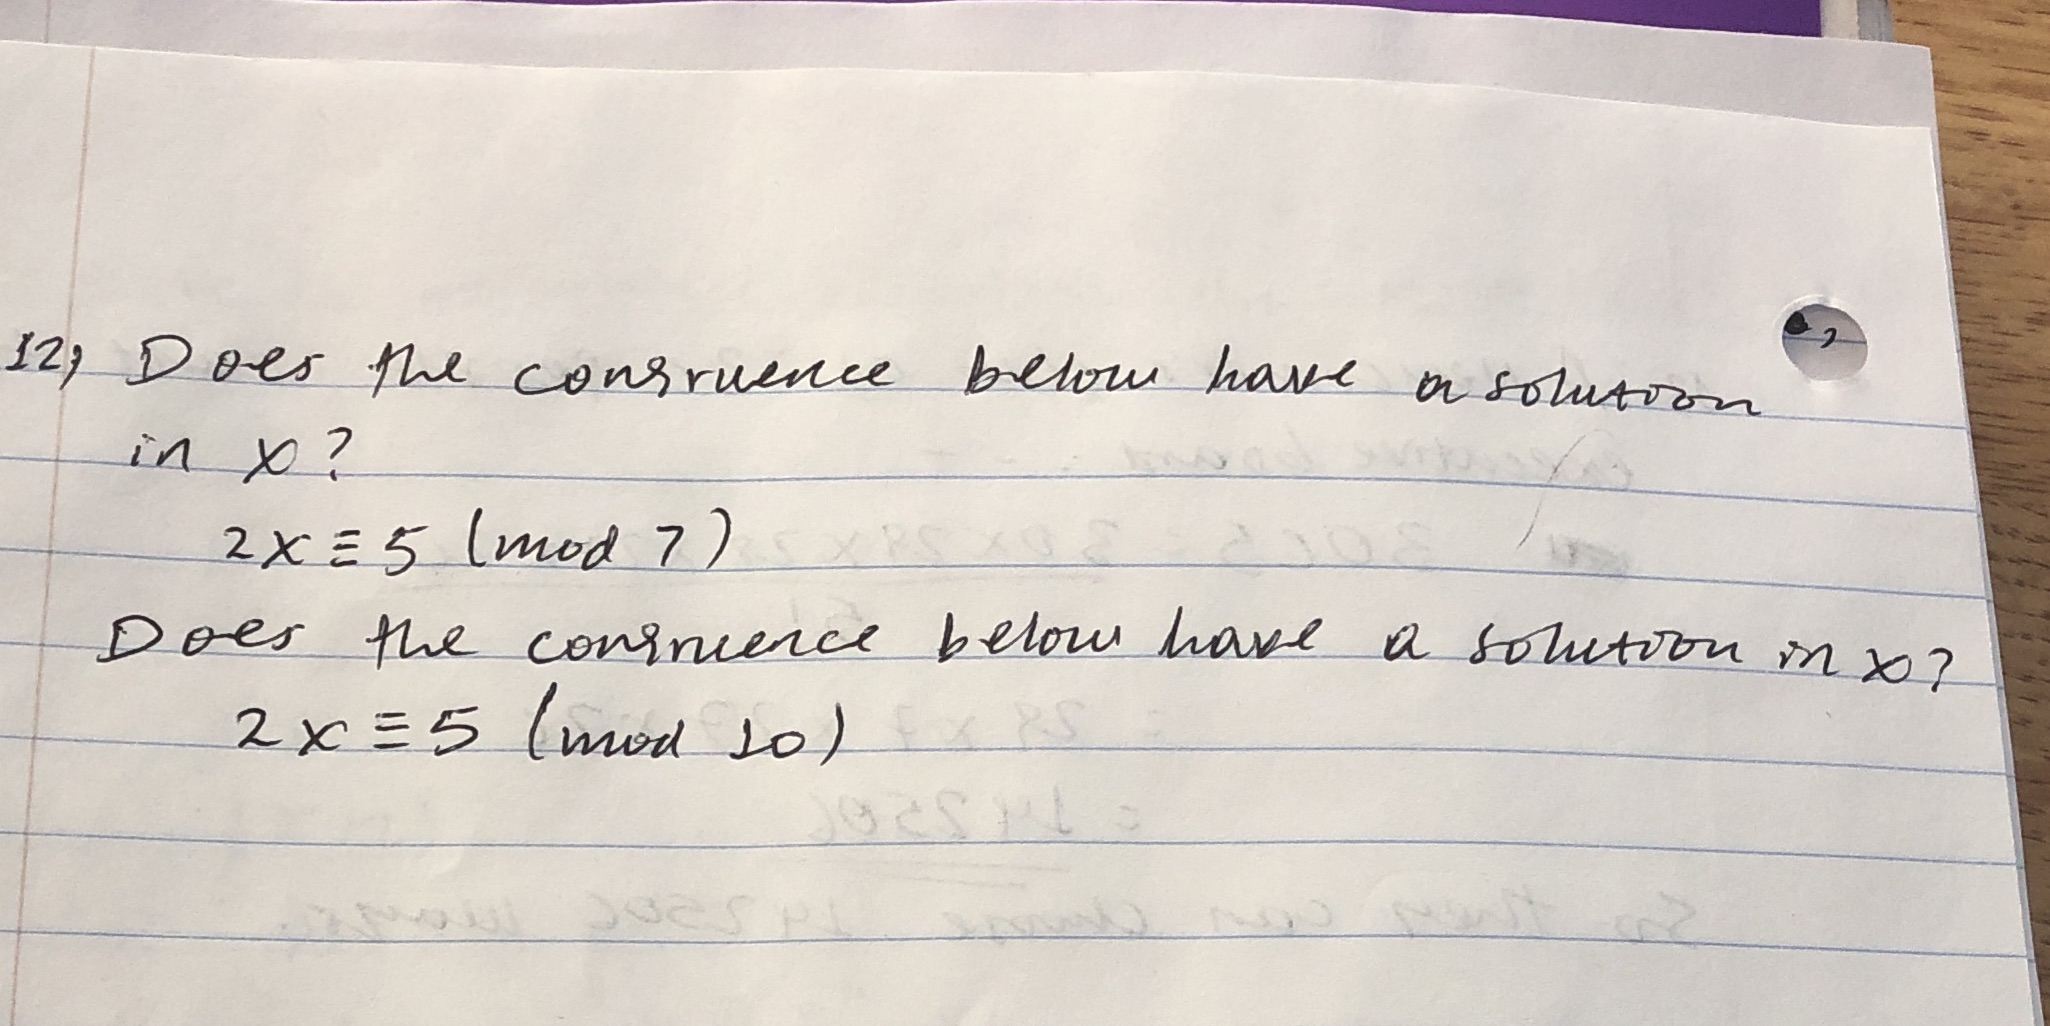 12) Does the congruence below have a solution
in x?
2x ≡ 5 (mod 7)
Does the congruence below have a solution in x?
2x ≡ 5 (mod 10)